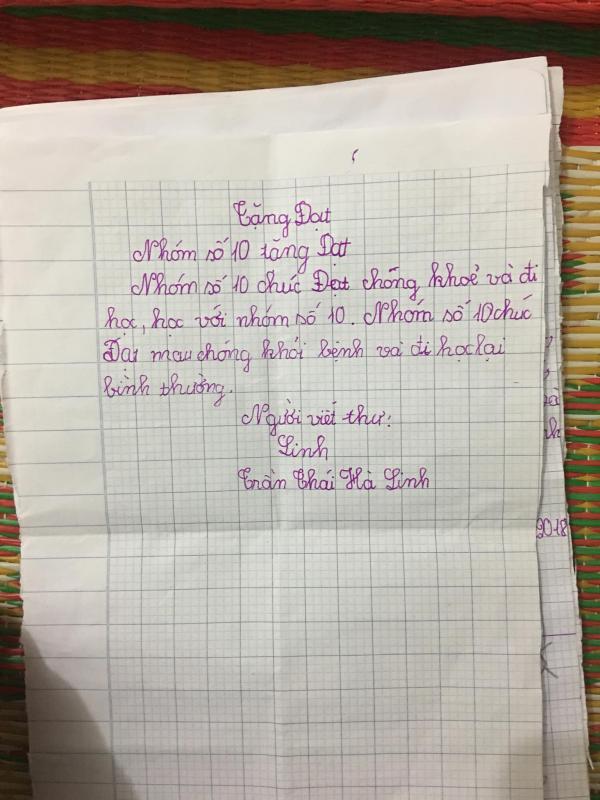 Tặng Đạt
Nhóm số 10 tặng Đạt
Nhóm số 10 chúc Đạt chóng khoẻ và đi
học, học với nhóm số 10. Nhóm số 10 chúc
Đạt mau chóng khỏi bệnh và đi học lại
bình thường.
Người viết thư:
Linh
Trần Thái Hà Linh
2018